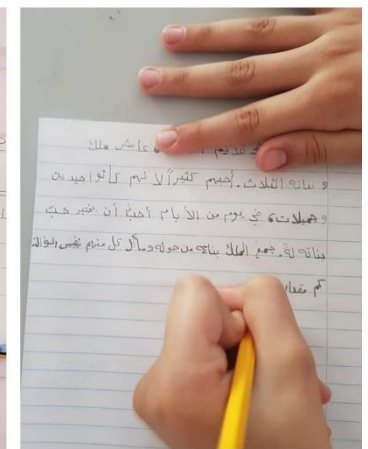 في قديم عاش ملك
و بناته الثلاث. أحبهم كثيراً لا نهم كانو اجيدين
و جميلات، في يوم من الأيام أحبّ أن يختبر حبّ
بناته لهُ. جمع الملك بناته من حوله وسأل كل منهم نفس السؤال
كم مقدار